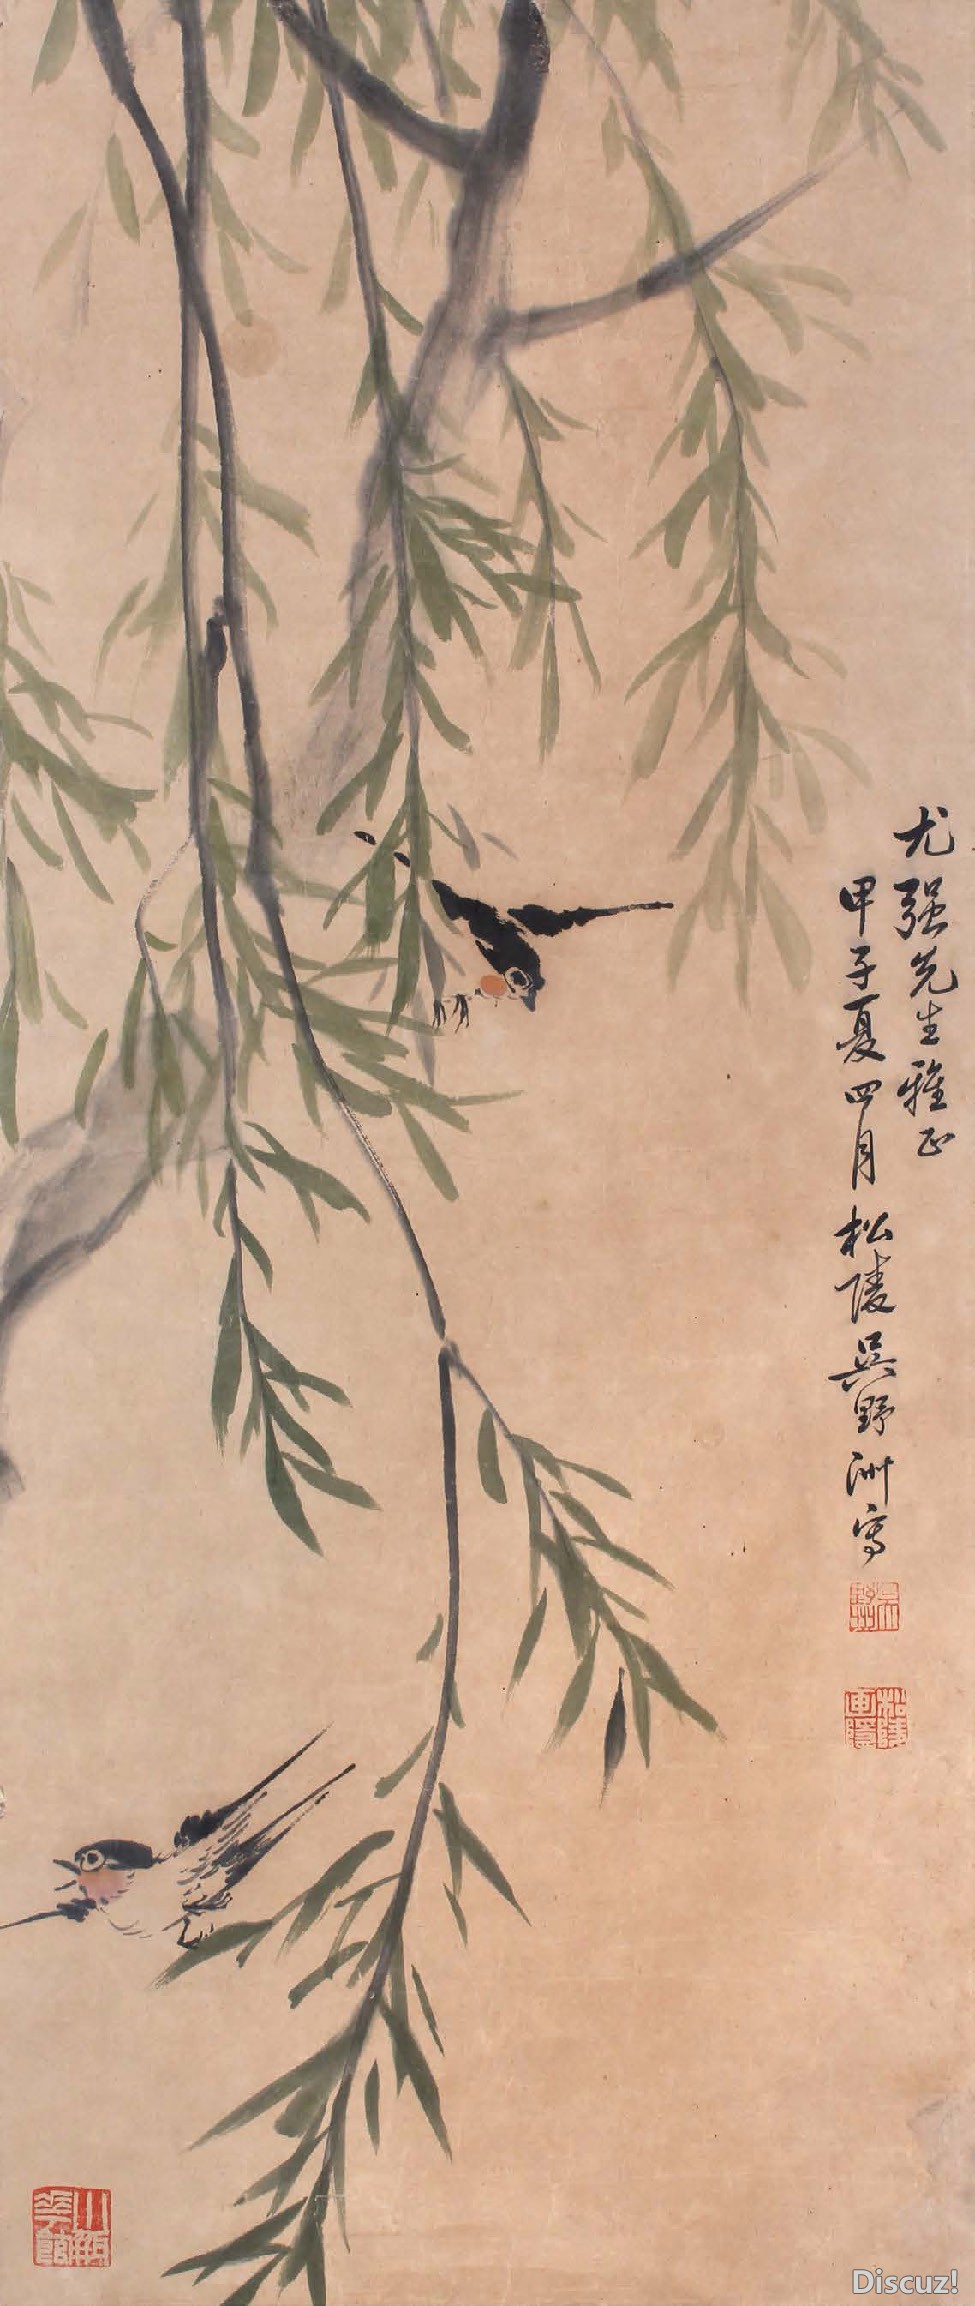 尤强先生雅正
甲子夏四月松陵吳野洲写
Discuz!